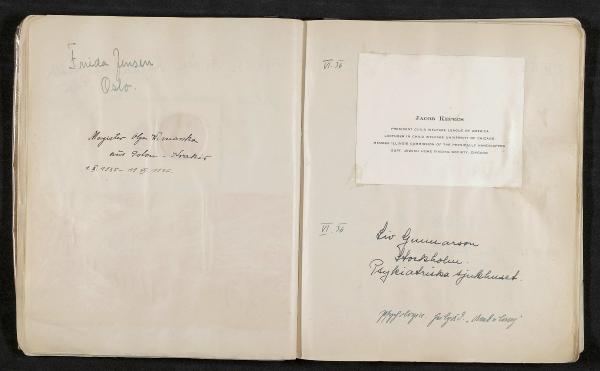 Frida Jensen
Oslo.
Magister Olga
aus Polen - Krakau
VI. 36
Jacob Kepecs
PRESIDENT CHILD WELFARE LEAGUE OF AMERICA
LECTURER IN CHILD WELFARE UNIVERSITY OF CHICAGO
MEMBER ILLINOIS COMMISSION OF THE PHYSICALLY HANDICAPPED
SUPT. JEWISH HOME FINDING SOCIETY, CHICAGO
VI. 36
Siv Gunnarson
Stockholm.
Psykiatriska sjukhuset.